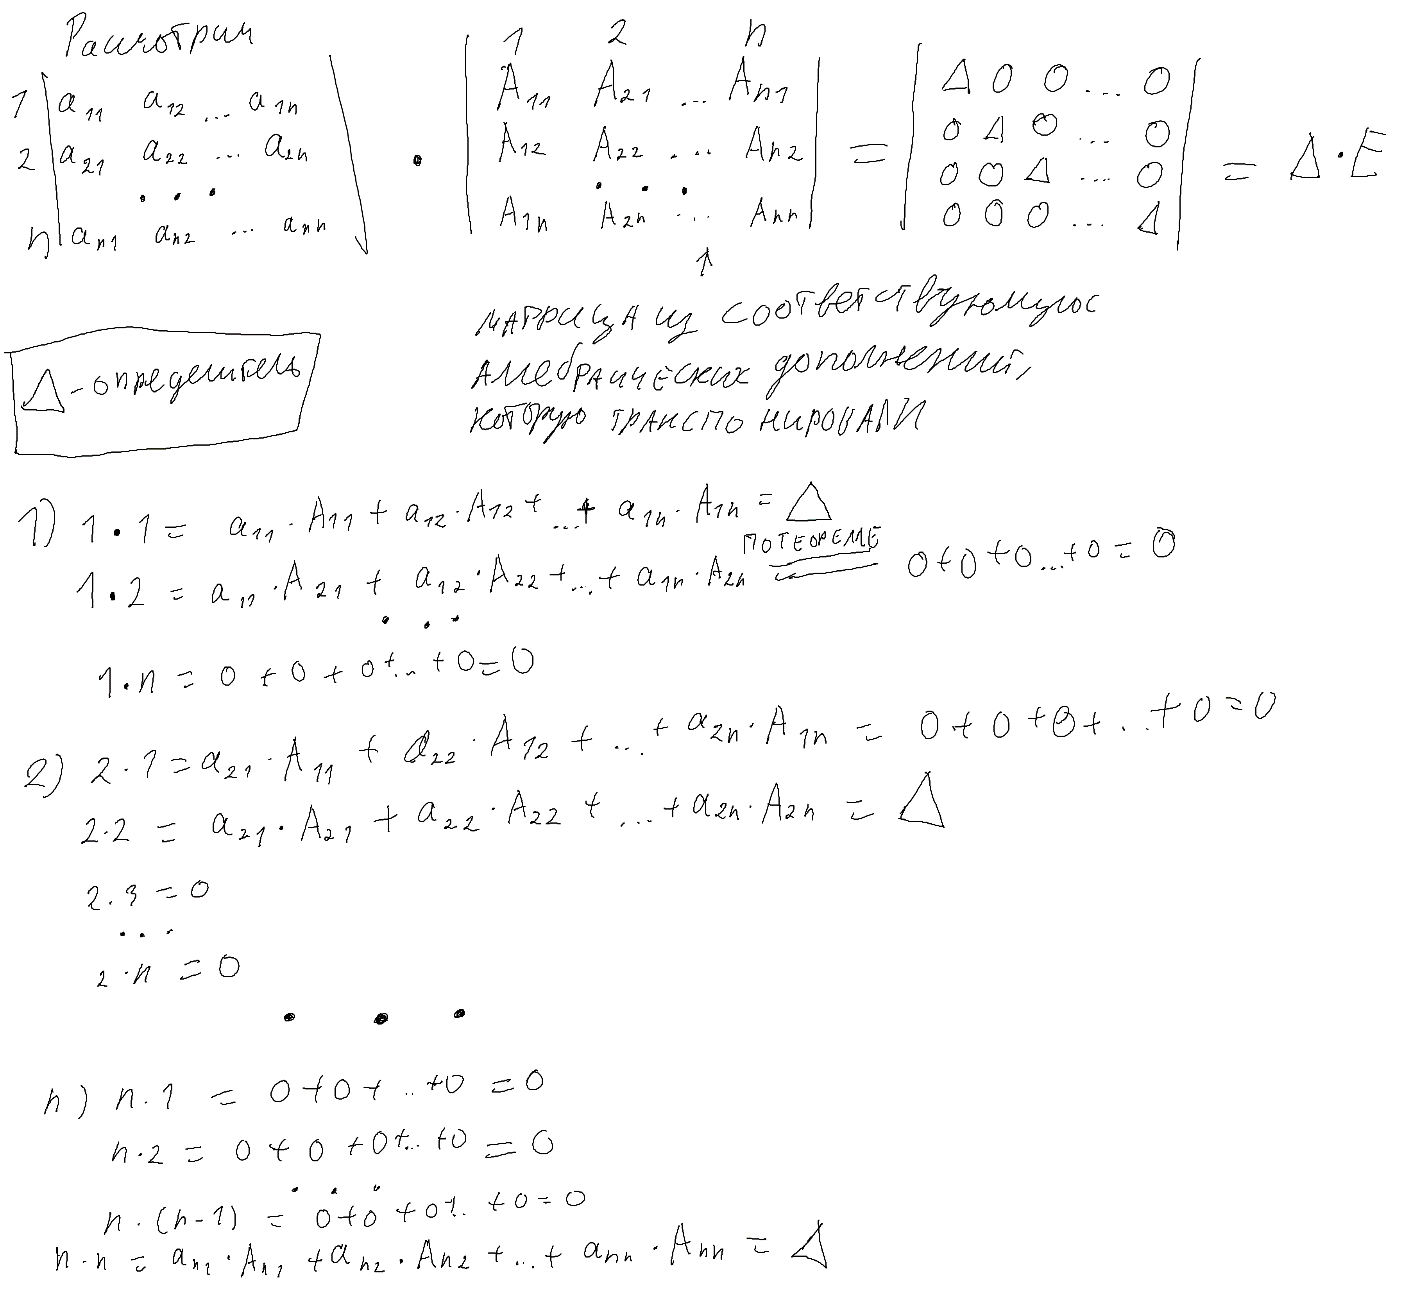 Рассмотрим
1 a₁₁ a₁₂ ... a₁ₙ
2 a₂₁ a₂₂ ... a₂ₙ
. . .
n aₙ₁ aₙ₂ ... aₙₙ
·
1 2 n
A₁₁ A₂₁ ... Aₙ₁
A₁₂ A₂₂ ... Aₙ₂
. . .
A₁ₙ A₂ₙ ... Aₙₙ
=
Δ 0 0 ... 0
0 Δ 0 ... 0
0 0 Δ ... 0
0 0 0 ... Δ
= Δ·E
↑
матрица из соответствующих
алгебраических дополнений,
которую транспонировали
Δ - определитель
1) 1·1 = a₁₁·A₁₁ + a₁₂·A₁₂ + ... + a₁ₙ·A₁ₙ = Δ
по теореме
1·2 = a₁₁·A₂₁ + a₁₂·A₂₂ + ... + a₁ₙ·A₂ₙ = 0+0+0...+0 = 0
. . .
1·n = 0 + 0 + 0+..+0 = 0
2) 2·1 = a₂₁·A₁₁ + a₂₂·A₁₂ + ... + a₂ₙ·A₁ₙ = 0+0+0+...+0 = 0
2·2 = a₂₁·A₂₁ + a₂₂·A₂₂ + ... + a₂ₙ·A₂ₙ = Δ
2·3 = 0
...
2·n = 0
. . .
n) n·1 = 0+0+..+0 = 0
n·2 = 0+0+0+..+0 = 0
. . .
n·(n-1) = 0+0+0+..+0 = 0
n·n = aₙ₁·Aₙ₁ + aₙ₂·Aₙ₂ + ... + aₙₙ·Aₙₙ = Δ